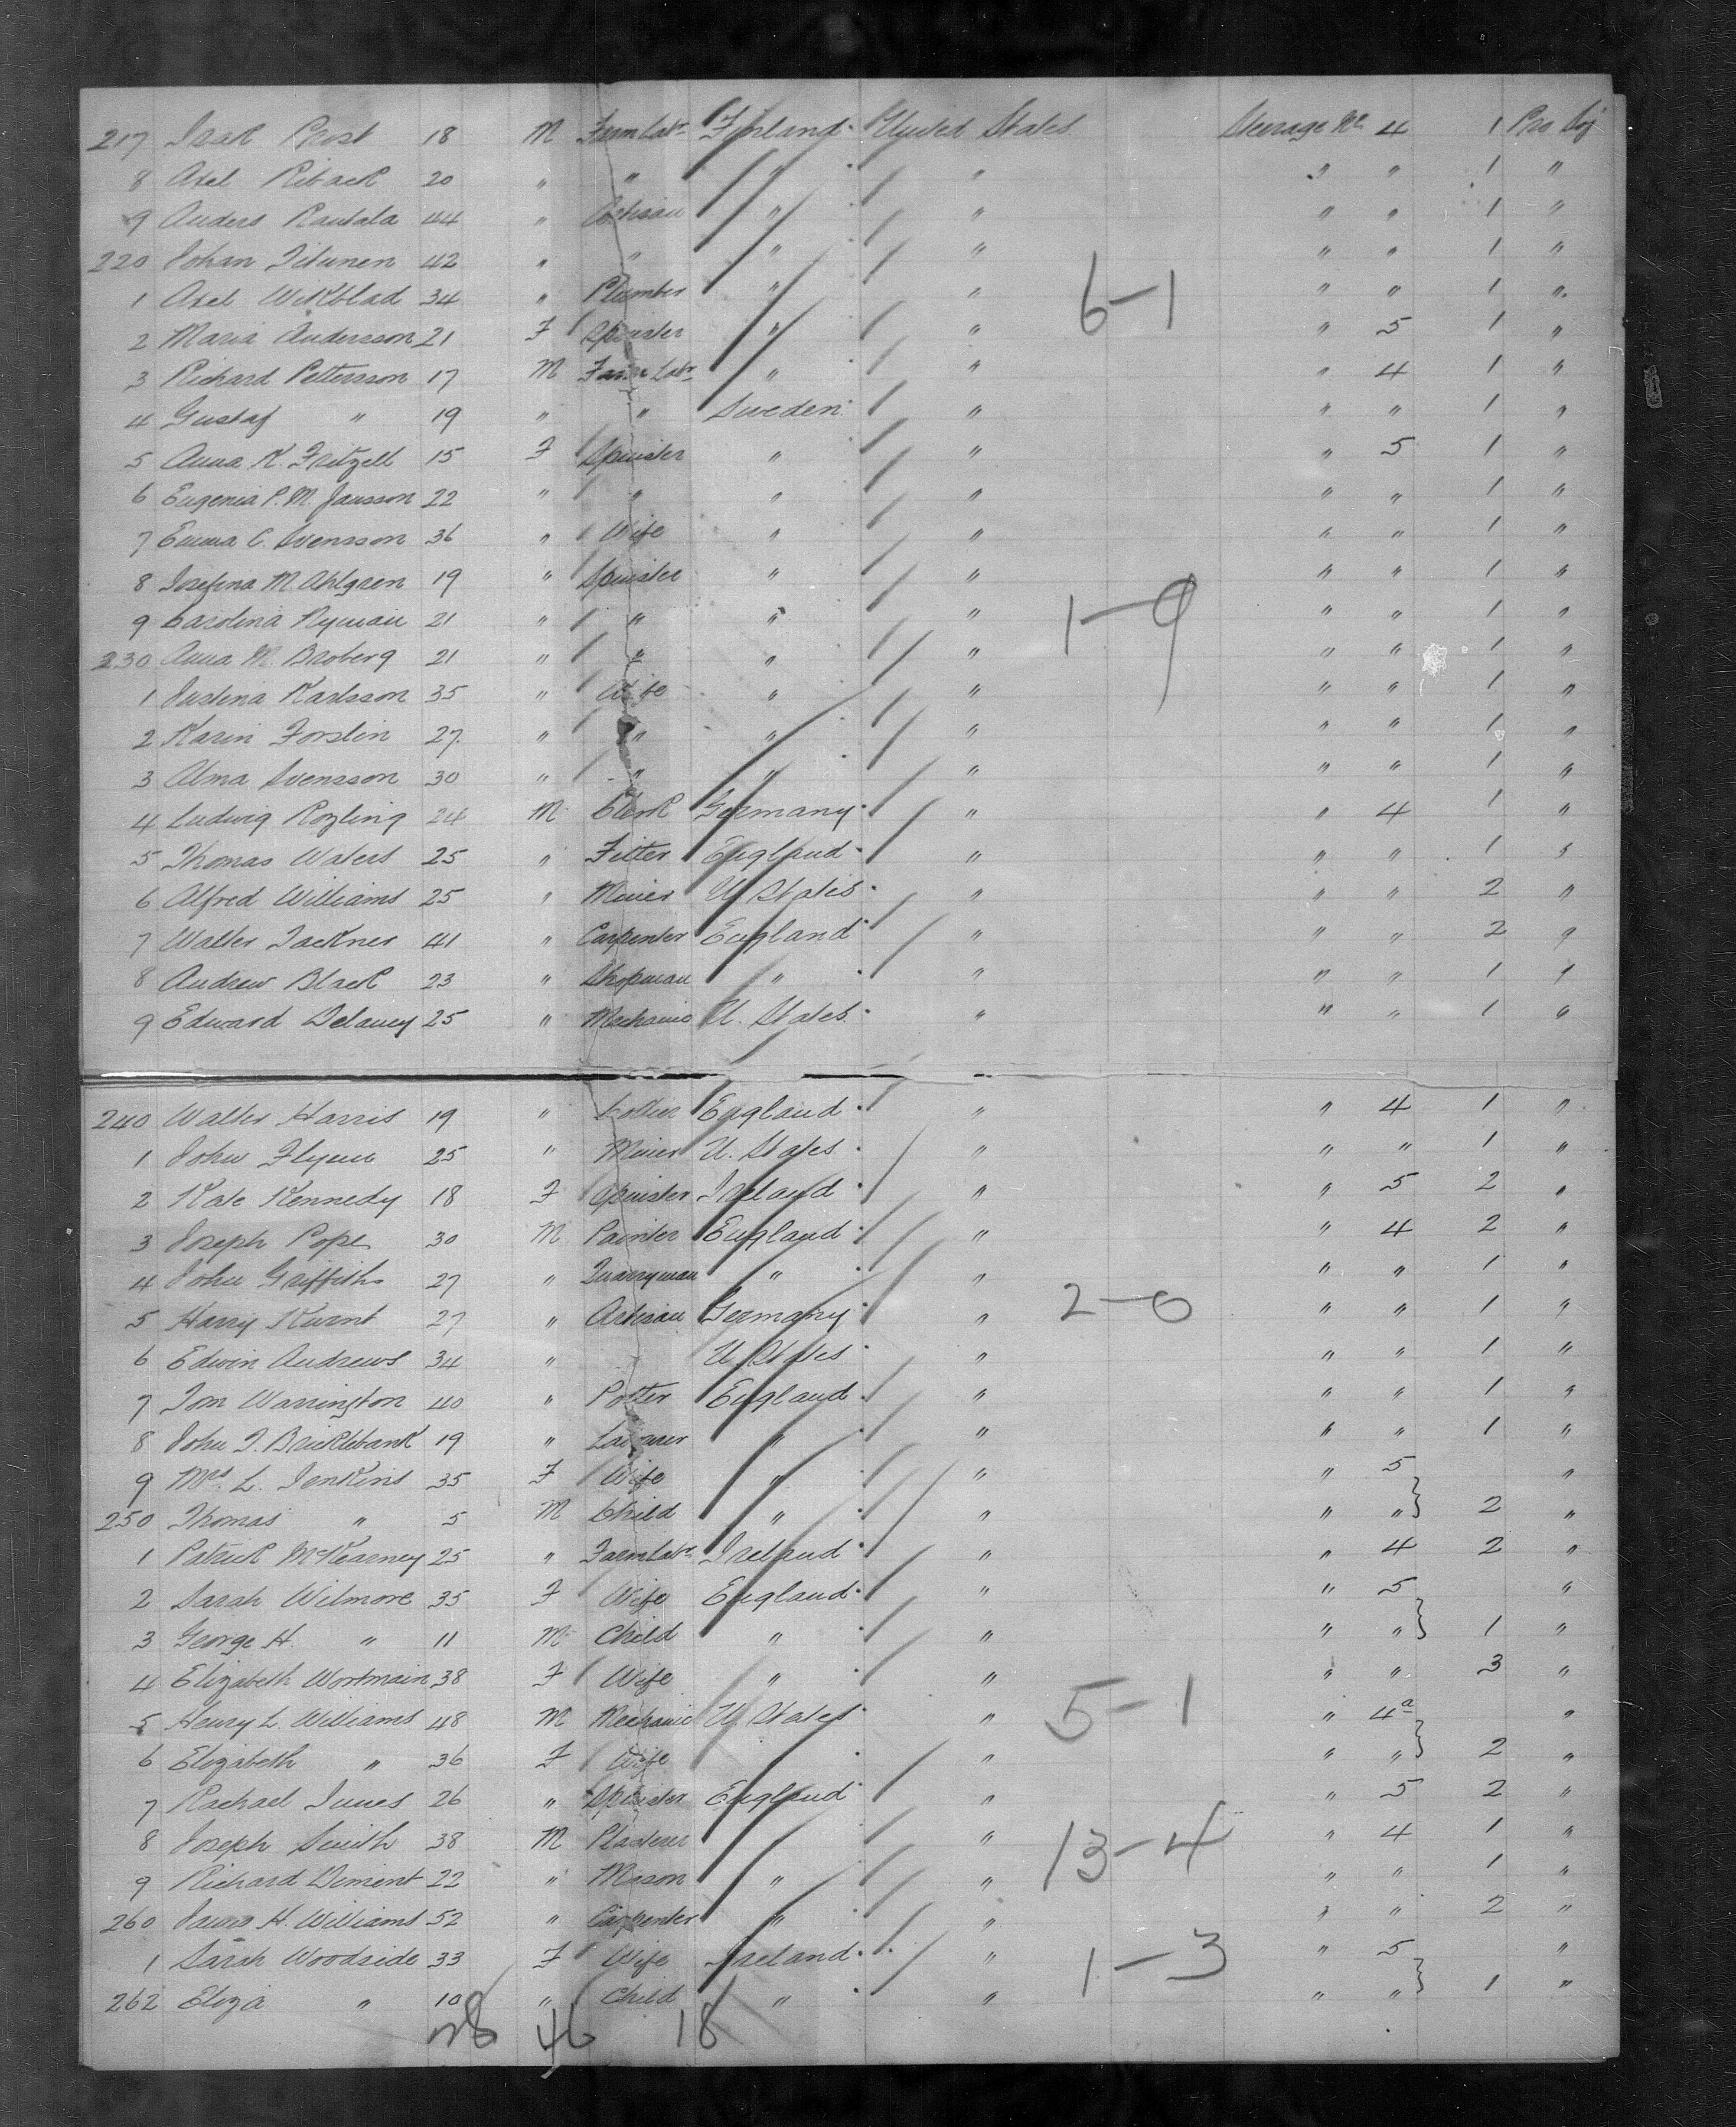 217 Isak Prost 18 M Farm Labr Finland United States Steerage No 4 1 Pro Soj
8 Axel Riback 20 " " " " " " 1 "
9 Anders Rautala 44 " Artisan " " " " 1 "
220 Johan 42 " " " " " " 1 "
1 Axel Wikblad 34 " Plumber " " " " 1 "
2 Maria Andersson 21 F Spinster " " " 5 1 "
3 Richard Pettersson 17 M Farm Labr " " " 4 1 "
4 Gustaf " 19 " " Sweden " " " 1 "
5 Anna K. Fritzell 15 F Spinster " " " 5 1 "
6 Eugenia P. M. Jansson 22 " " " " " " 1 "
7 Emma C. Svensson 36 " Wife " " " " 1 "
8 Josefina M. Ahlgren 19 " Spinster " " " " 1 "
9 Carolina Nyman 21 " " " " " " 1 "
230 Anna M. Broberg 21 " " " " " " 1 "
1 Justina Karlsson 35 " Wife " " " " 1 "
2 Karin Forslin 27 " " " " " " 1 "
3 Alma Svensson 30 " " " " " " 1 "
4 Ludwig Rozling 24 M Clerk Germany " " 4 1 "
5 Thomas Waters 25 " Fitter England " " " 1 "
6 Alfred Williams 25 " Miner U States " " " 2 "
7 Walter Jackner 41 " Carpenter England " " " 2 "
8 Andrew Black 23 " Shopman " " " " 1 "
9 Edward Delaney 25 " Mechanic U. States " " " 1 "
240 Walter Harris 19 " England " " 4 1 "
1 John Flynn 25 " Miner U. States " " " 1 "
2 Kate Kennedy 18 F Spinster Ireland " " 5 2 "
3 Joseph Pope 30 M Painter England " " 4 2 "
4 John Griffiths 27 " Quarryman " " " " 1 "
5 Harry Kurnt 27 " Artisan Germany " " " 1 "
6 Edwin Andrews 34 " U. States " " " 1 "
7 Tom Warrington 40 " Potter England " " " 1 "
8 John T. Bricklebank 19 " Labourer " " " " 1 "
9 Mrs. L. Jenkins 35 F Wife " " " 5 "
250 Thomas " 5 M Child " " " " 2 "
1 Patrick McKearney 25 " Farm Labr Ireland " " 4 2 "
2 Sarah Wilmore 35 F Wife England " " 5 "
3 George H. " 11 M Child " " " " 1 "
4 Elizabeth Wortmain 38 F Wife " " " " 3 "
5 Henry L. Williams 48 M Mechanic U. States " " 4a "
6 Elizabeth " 36 F Wife " " " 2 "
7 Rachael Innes 26 " Spinster England " " 5 2 "
8 Joseph Smith 38 M Plasterer " " 4 1 "
9 Richard Diment 22 " Mason " " " " 1 "
260 James H. Williams 52 " Carpenter " " " " 2 "
1 Sarah Woodside 33 F Wife Ireland " " 5 "
262 Eliza " 10 " Child " " " " 1 "
6-1
1-9
2-0
5-1
13-4
1-3
28 46 18